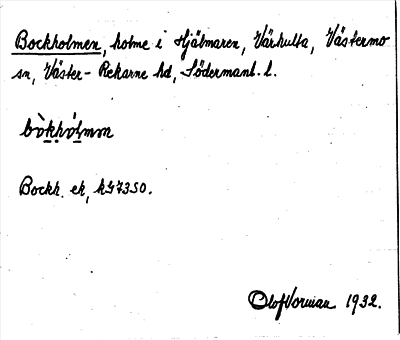 Bockholmen, holme i Hjälmaren, Värhulta, Västermo
sn, Väster-Rekarne hd, Södermanl. l.
bòkhólmən
Bockh. ek,
Olof Vorman 1932.